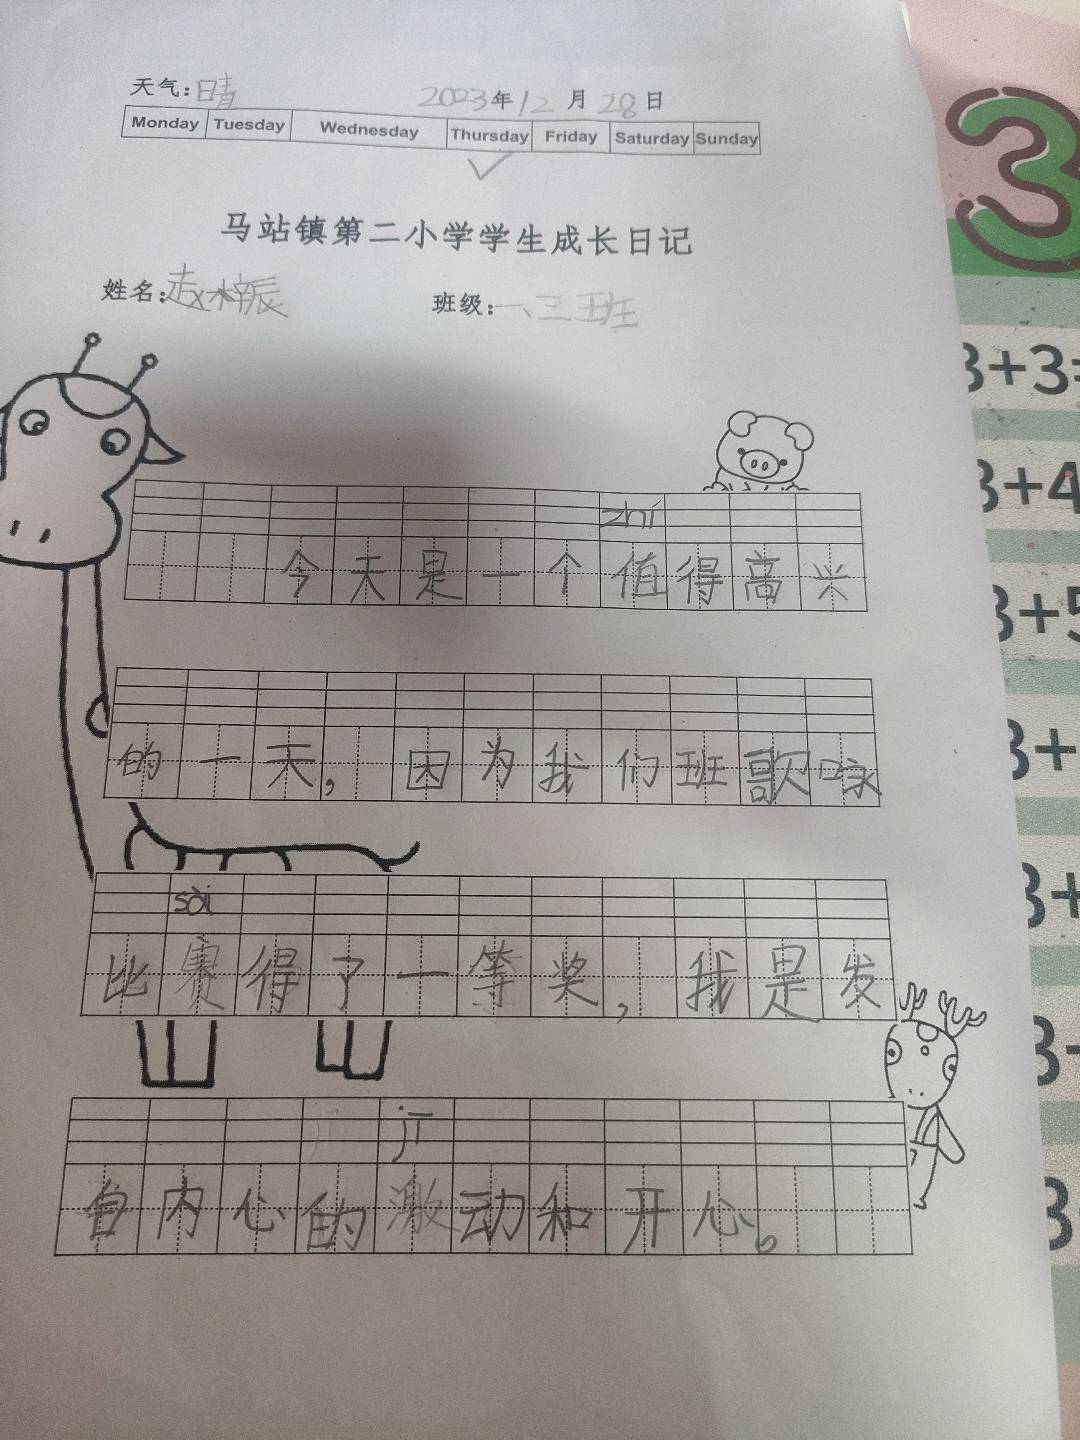 天气：晴 2023年12月28日
Monday Tuesday Wednesday Thursday Friday Saturday Sunday
马站镇第二小学学生成长日记
姓名：赵梓辰 班级：一、三班
zhí
今天是一个值得高兴
的一天，因为我们班歌咏
sài
比赛得了一等奖，我是发
jī
自内心的激动和开心。
3
3+3=
3+4
3+5
3+
3+
3
3